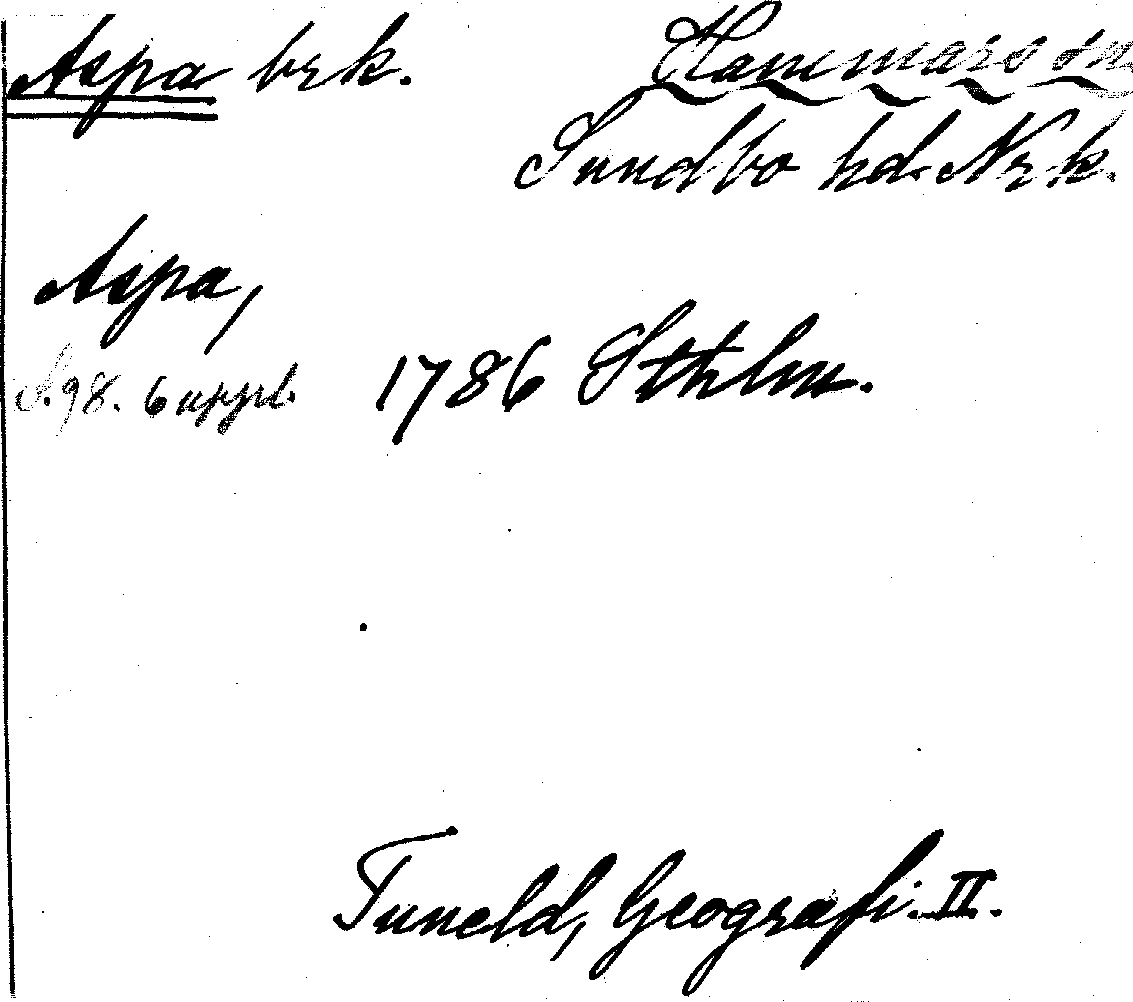 Aspa brk. Hammars sn.
Sundbo hd. Nrk.
Aspa,
S. 98. 6 uppl. 1786 Sthlm.
Tuneld, Geografi. II.